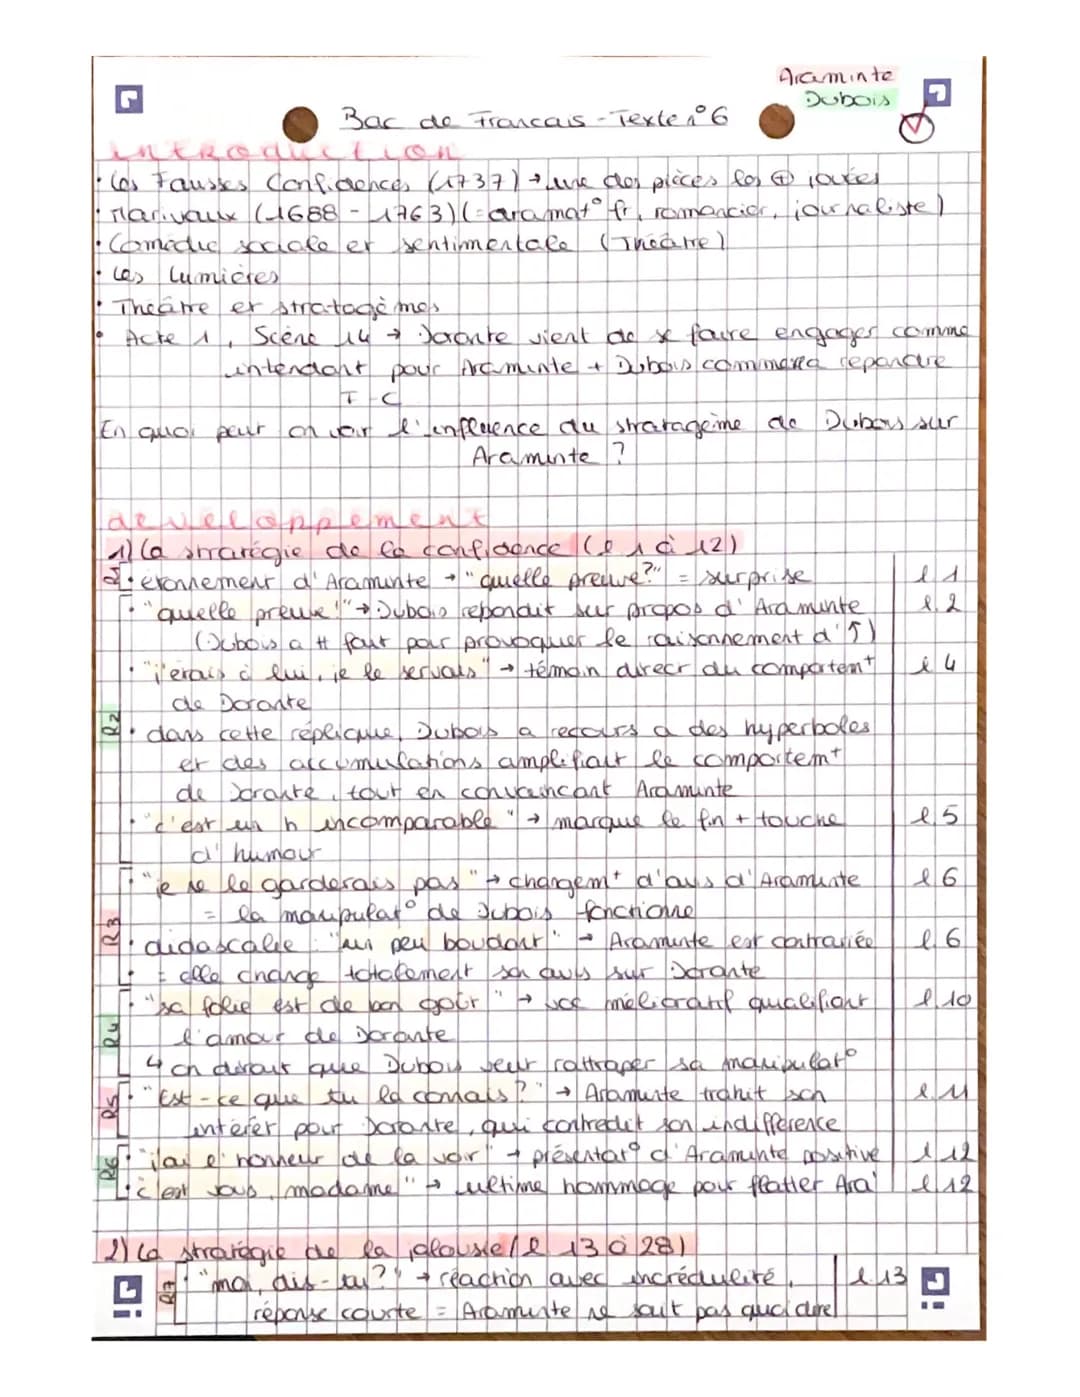 Araminte
Dubois
Bac de Francais - Texte n°6
introduction
• Les Fausses Confidences (1737) → une des pièces les ⊕ jouées
• Marivaux (1688 - 1763) (= dramat° fr, romancier, journaliste)
• Comédie sociale et sentimentale (Théatre)
• Les Lumières
• Théâtre et stratagèmes
• Acte 1, Scène 14 → Dorante vient de se faire engager comme
intendant pour Araminte + Dubois commença repandre
F-C
En quoi peut on voir l'influence du stratagème de Dubois sur
Araminte ?
développement
1) La stratégie de la confidence (l 1 à 12)
étonnement d'Araminte → "quelle preuve?" = surprise l 1
• "quelle preuve!" → Dubois rebondit sur propos d'Araminte l.2
(Dubois a tt fait pour provoquer le raisonnement d'↑)
• "j'étais à lui, je le servais" → témoin direct du comportemt l 4
de Dorante
R2 • dans cette réplique, Dubois a recours a des hyperboles
et des accumulations amplifiant le comportemt
de Dorante, tout en convaincant Araminte
• "c'est un h incomparable" → marque le fin + touche l.5
d'humour
• "je ne le garderais pas" → changemt d'avis d'Araminte l 6
= la manipulat° de Dubois fonctionne
R3 • didascalie : "un peu boudant" → Araminte est contrariée l.6
= elle change totalement son avis sur Dorante
• "sa folie est de bon goût" → voc mélioratif qualifiant l.10
R4 l'amour de Dorante
↳ on dirait que Dubois veut rattraper sa manipulat°
R5 • "Est-ce que tu la connais?" → Araminte trahit son l.11
intérêt pour Dorante, qui contredit son indifférence
R6 • "j'ai l'honneur de la voir" → présentat° d'Araminte positive l 12
• "c'est vous, madame" → ultime hommage pour flatter Ara' l 12
2) La stratégie de la jalousie (l 13 à 28)
R7 • "moi, dis-tu?" → réaction avec incrédulité, l.13
réponse courte = Araminte ne sait pas quoi dire